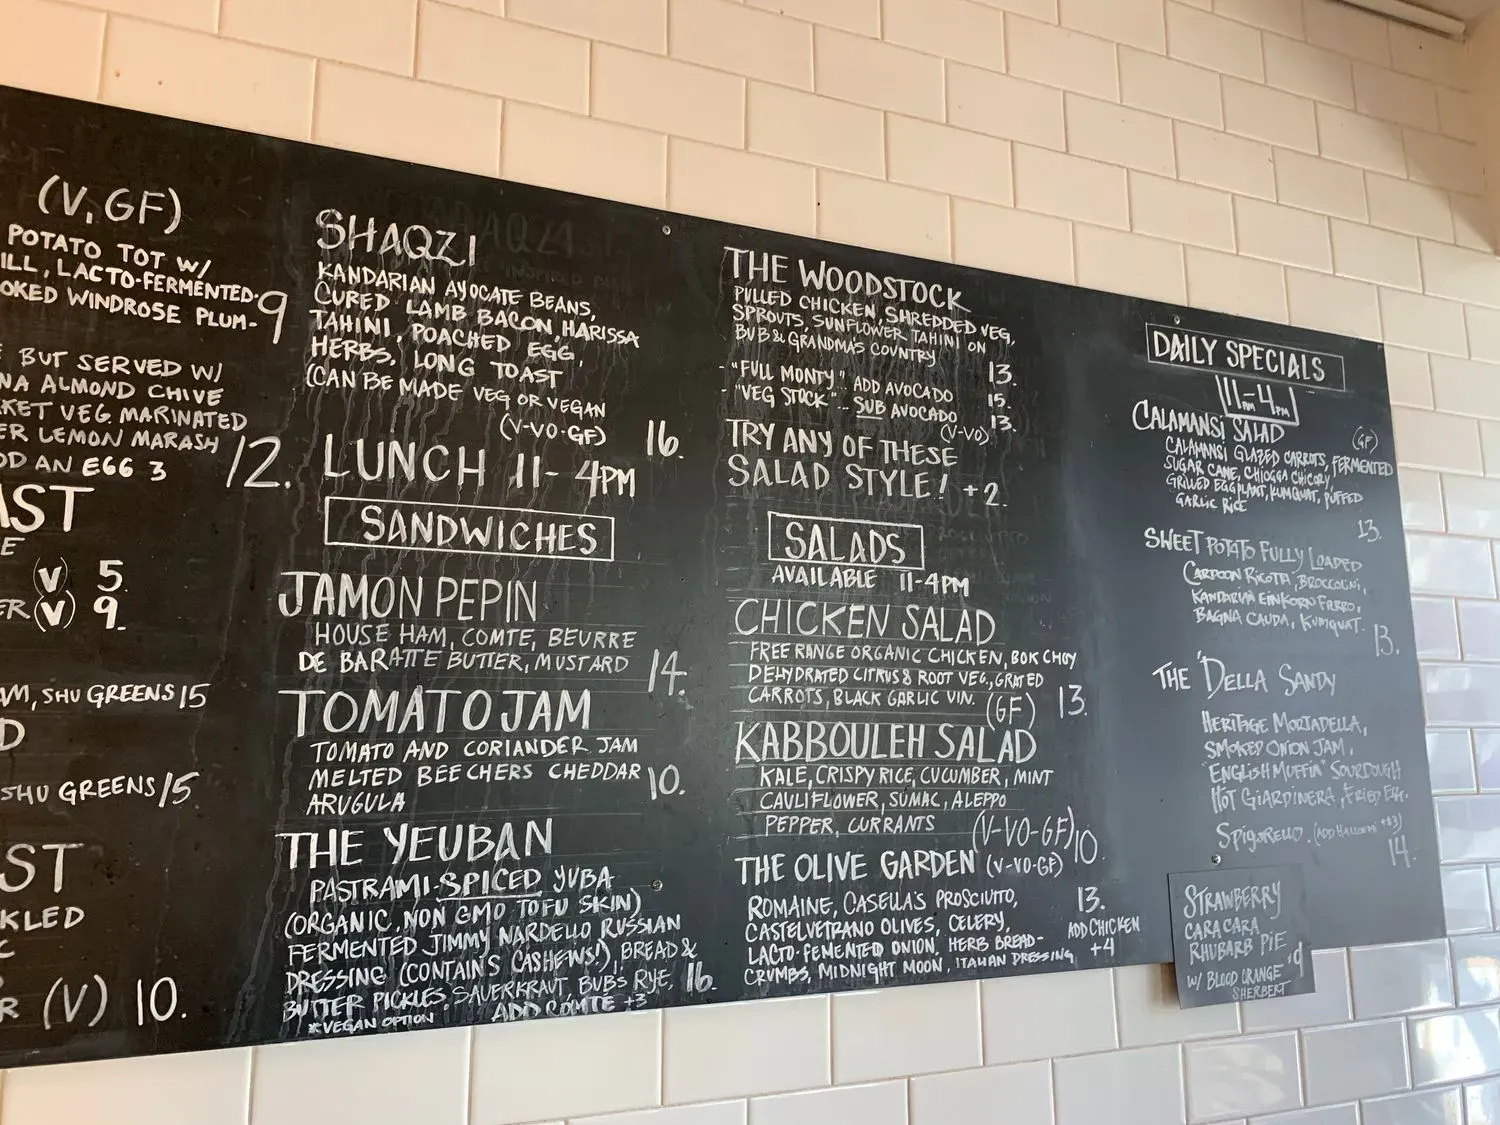 (V, GF)
POTATO TOT W/
ILL, LACTO-FERMENTED
OKED WINDROSE PLUM- 9
BUT SERVED W/
NA ALMOND CHIVE
KET VEG. MARINATED
ER LEMON MARASH
DD AN EGG 3 12.
AST
E
(V) 5.
ER (V) 9.
AM, SHU GREENS 15
D
SHU GREENS 15.
ST
KLED
C
R (V) 10.
SHAQZI
KANDARIAN AYOCATE BEANS,
CURED LAMB BACON, HARISSA
TAHINI, POACHED EGG,
HERBS, LONG TOAST
(CAN BE MADE VEG OR VEGAN
(V-VO-GF) 16.
LUNCH 11-4PM
SANDWICHES
JAMON PEPIN
HOUSE HAM, COMTE, BEURRE
DE BARATTE BUTTER, MUSTARD 14.
TOMATO JAM
TOMATO AND CORIANDER JAM
MELTED BEECHERS CHEDDAR 10.
ARUGULA
THE YEUBAN
PASTRAMI-SPICED YUBA
(ORGANIC, NON GMO TOFU SKIN)
FERMENTED JIMMY NARDELLO RUSSIAN
DRESSING (CONTAINS CASHEWS!), BREAD &
BUTTER PICKLES, SAUERKRAUT, BUB'S RYE, 16.
*VEGAN OPTION ADD COMTE +3
THE WOODSTOCK
PULLED CHICKEN, SHREDDED VEG,
SPROUTS, SUNFLOWER TAHINI ON
BUB & GRANDMA'S COUNTRY 13.
- "FULL MONTY".. ADD AVOCADO 15.
- "VEG STOCK"... SUB AVOCADO 13.
(V-VO)
TRY ANY OF THESE
SALAD STYLE! +2.
SALADS
AVAILABLE 11-4PM
CHICKEN SALAD
FREE RANGE ORGANIC CHICKEN, BOK CHOY
DEHYDRATED CITRUS & ROOT VEG., GRATED
CARROTS, BLACK GARLIC VIN. (GF) 13.
KABBOULEH SALAD
KALE, CRISPY RICE, CUCUMBER, MINT
CAULIFLOWER, SUMAC, ALEPPO
PEPPER, CURRANTS (V-VO-GF) 10.
THE OLIVE GARDEN (V-VO-GF)
ROMAINE, CASELLA'S PROSCIUTTO, 13.
CASTELVETRANO OLIVES, CELERY, ADD CHICKEN
LACTO-FEMENTED ONION, HERB BREAD- +4
CRUMBS, MIDNIGHT MOON, ITALIAN DRESSING
DAILY SPECIALS
11AM-4PM
CALAMANSI SALAD (GF)
CALAMANSI GLAZED CARROTS, FERMENTED
SUGAR CANE, CHIOGGA CHICORY,
GRILLED EGGPLANT, KUMQUAT, PUFFED
GARLIC RICE 13.
SWEET POTATO FULLY LOADED
CARDOON RICOTTA, BROCCOLINI,
KANDARIAN EINKORN FARRO,
BAGNA CAUDA, KUMQUAT. 13.
THE "DELLA SANDY
HERITAGE MORTADELLA,
SMOKED ONION JAM,
"ENGLISH MUFFIN" SOURDOUGH
HOT GIARDINERA, FRIED EGG.
SPIGARELLO. (ADD HALLOUMI +$3) 14.
STRAWBERRY
CARA CARA
RHUBARB PIE 9
W/ BLOOD ORANGE
SHERBERT